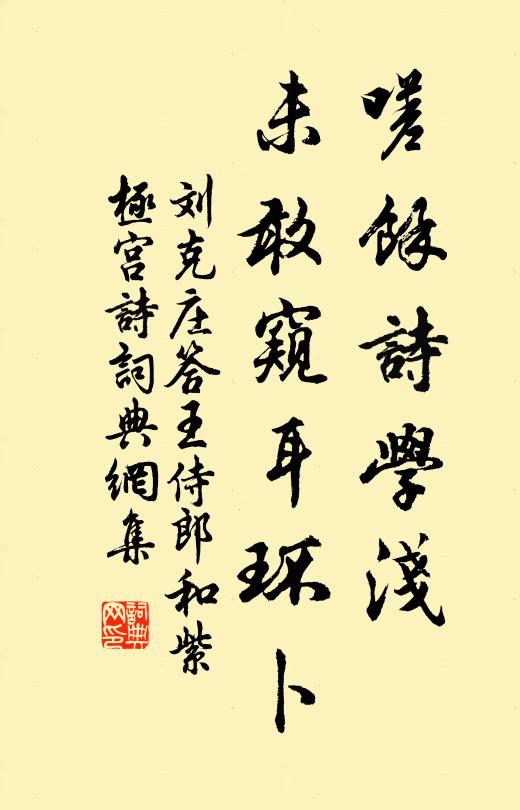 嗟餘詩學淺
未敢窺耳環卜
刘克庄答王侍郎和紫
極宮詩詞典網集
詞典
网印